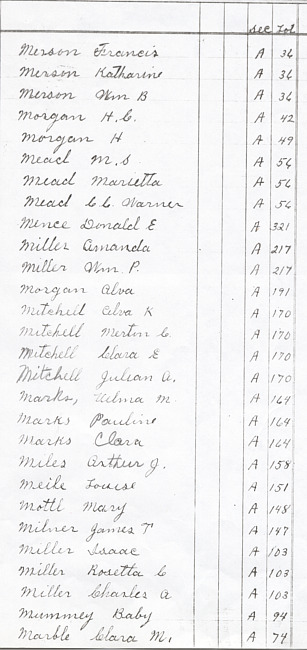 Sec Lot
Merson Francis A 36
Merson Katharine A 36
Merson Wm B A 36
Morgan H.C. A 42
Morgan H A 49
Mead M.S A 56
Mead Marietta A 56
Mead C.C. Warner A 56
Mence Donald E A 321
Miller Amanda A 217
Miller Wm. P. A 217
Morgan Alva A 191
Mitchell Alva K A 170
Mitchell Merton C. A 170
Mitchell Clara E A 170
Mitchell Julian A. A 170
Marks, Wilma M. A 164
Marks Pauline A 164
Marks Clara A 164
Miles Arthur J. A 158
Meile Louise A 151
Mottl Mary A 148
Milner James T A 147
Miller Isaac A 103
Miller Rosetta C A 103
Miller Charles A A 103
Mummey Baby A 94
Marble Clara M. A 74